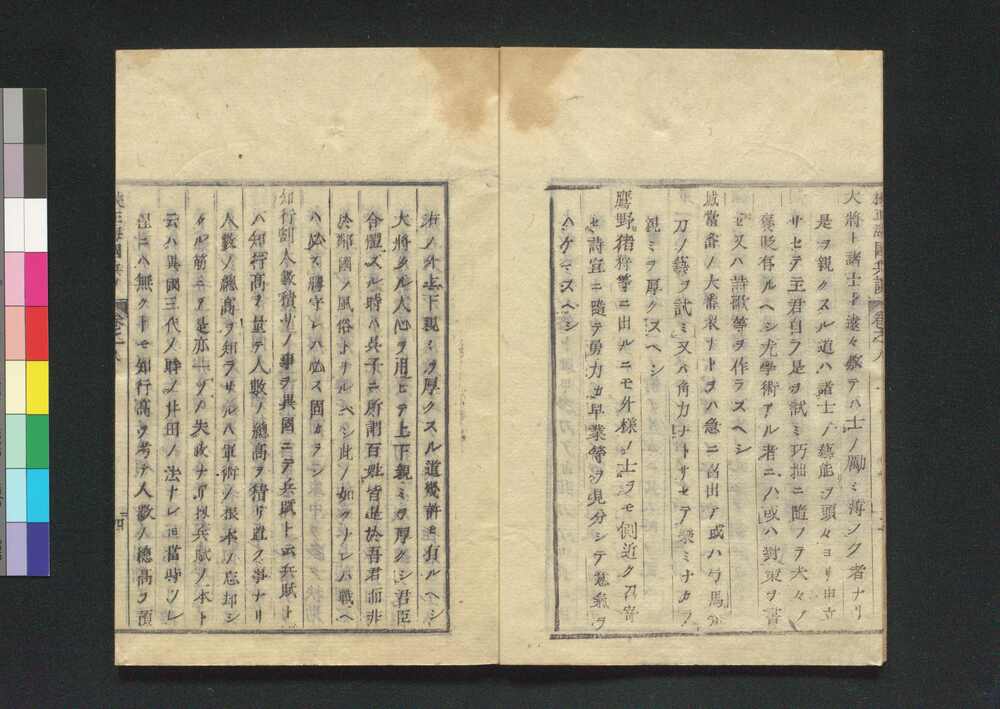 大將ト諸士ト遠々敷テハ士ノ勵ミ薄ノク者ナリ
是ヲ親クスル道ハ諸士ノ藝能ヲ頭々ヨリ申立
サセテ主君自ラ是ヲ試ミ巧拙ニ隨フテ夫々ノ
褒貶有ルヘシ尤學術アル者ニハ或ハ對策ヲ書
セ又ハ詩歌等ヲ作ラスヘシ
城當番ノ大番衆ナトヲハ急ニ召出テ或ハ弓馬
刀ノ藝ヲ試ミ又ハ角力ナトサセテ衆ミナカラノ
親ミヲ厚クスヘシ
鷹野猪狩等ニ出ルニモ外樣ノ士ヲモ側近ク召寄
セ詩宜ニ隨テ勇力カ早業等ヲ見分シテ
ハケマスヘシ
此ノ外上下親ミヲ厚クスル道幾許モ有ルヘシ
大將タル人心ヲ用ヒテ上下親ミヲ厚クシ君臣
合體スル時ハ吳子ニ所謂百姓皆是於吾君而非
於鄰國ノ風俗トナルヘシ此ノ如クナレハ戰ヘ
ハ必ス勝守レハ必ス固カラン
知行割人數積リノ事ヲ異國ニテ兵賦ト云兵賦ト
ハ知行高ヲ量テ人數ノ總高ヲ積リ置ク事ナリ
人數ノ總高ヲ知ラサルハ軍術ノ根本ヲ忘却シ
タル筋ニテ是亦一ツノ失政ナリ扨兵賦ノ本ト
云ハ異國三代ノ時ノ井田ノ法ナレ𪜈當時ツレ
程ニハ無クトモ知行高ヲ考テ人數ノ總高ヲ預